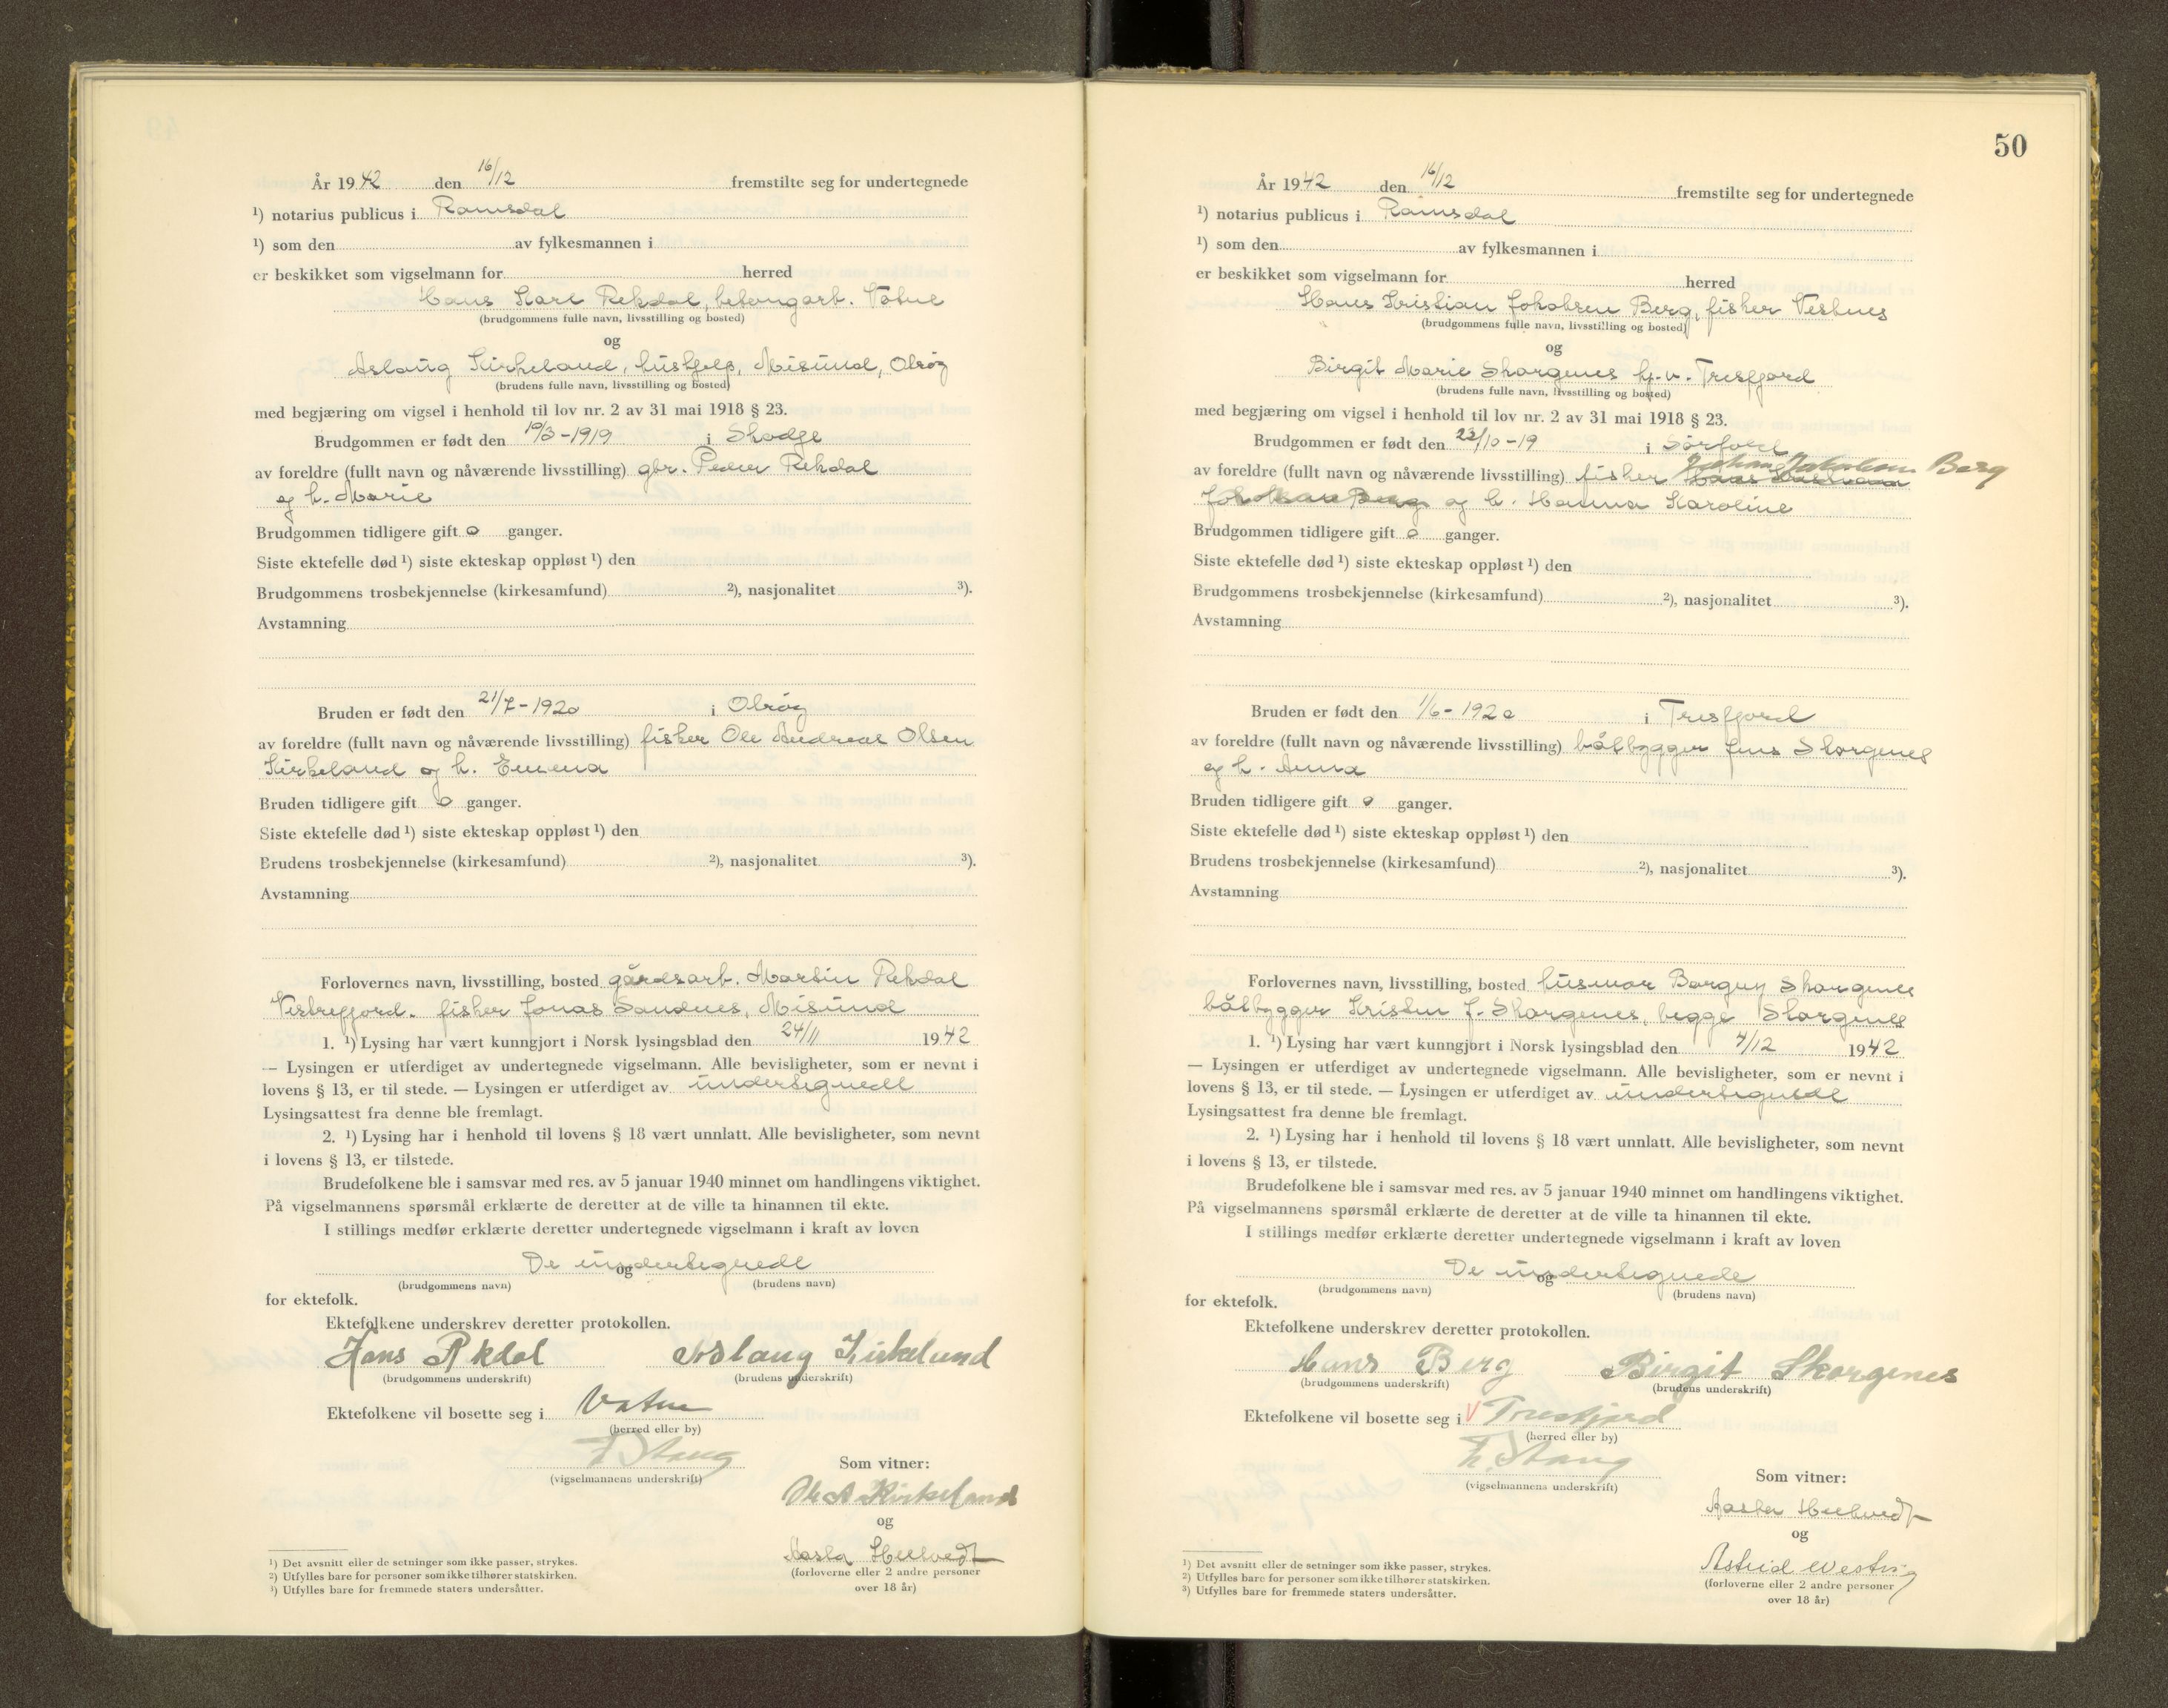 År 1942 den 16/12 fremstilte seg for undertegnede
¹) notarius publicus i Romsdal
¹) som den av fylkesmannen i
er beskikket som vigselmann for herred
Hans Karl Rekdal, betongarb. Vatne
(brudgommens fulle navn, livsstilling og bosted)
og
Aslaug Kirkeland, hushjelp, Misund, Otrøy
(brudens fulle navn, livsstilling og bosted)
med begjæring om vigsel i henhold til lov nr. 2 av 31 mai 1918 § 23.
Brudgommen er født den 19/3-1919 i Skodje
av foreldre (fullt navn og nåværende livsstilling) gbr. Peder Rekdal
og h. Marie
Brudgommen tidligere gift 0 ganger.
Siste ektefelle død ¹) siste ekteskap oppløst ¹) den
Brudgommens trosbekjennelse (kirkesamfund) ²), nasjonalitet ³).
Avstamning
Bruden er født den 21/7-1920 i Otrøy
av foreldre (fullt navn og nåværende livsstilling) fisker Ole Andreas Olsen
Kirkeland og h. Emma
Bruden tidligere gift 0 ganger.
Siste ektefelle død ¹) siste ekteskap oppløst ¹) den
Brudens trosbekjennelse (kirkesamfund) ²), nasjonalitet ³).
Avstamning
Forlovernes navn, livsstilling, bosted gårdsarb. Martin Rekdal
Vestrefjord. fisker Jonas Sandnes, Misund
1. ¹) Lysing har vært kunngjort i Norsk lysingsblad den 24/11 1942
— Lysingen er utferdiget av undertegnede vigselmann. Alle bevisligheter, som er nevnt i
lovens § 13, er til stede. — Lysingen er utferdiget av undertegnede
Lysingsattest fra denne ble fremlagt.
2. ¹) Lysing har i henhold til lovens § 18 vært unnlatt. Alle bevisligheter, som nevnt
i lovens § 13, er tilstede.
Brudefolkene ble i samsvar med res. av 5 januar 1940 minnet om handlingens viktighet.
På vigselmannens spørsmål erklærte de deretter at de ville ta hinannen til ekte.
I stillings medfør erklærte deretter undertegnede vigselmann i kraft av loven
De undertegnede
og
(brudgommens navn) (brudens navn)
for ektefolk.
Ektefolkene underskrev deretter protokollen.
Hans Rekdal Aslaug Kirkelund
(brudgommens underskrift) (brudens underskrift)
Ektefolkene vil bosette seg i Vatne
(herred eller by)
Stang
(vigselmannens underskrift)
Som vitner:
Ole A Kirkeland
og
Aasta Heltvedt
(forloverne eller 2 andre personer
over 18 år)
¹) Det avsnitt eller de setninger som ikke passer, strykes.
²) Utfylles bare for personer som ikke tilhører statskirken.
³) Utfylles bare for fremmede staters undersåtter.
50
År 1942 den 16/12 fremstilte seg for undertegnede
¹) notarius publicus i Romsdal
¹) som den av fylkesmannen i
er beskikket som vigselmann for herred
Hans Kristian Jokobsen Berg, fisker Vestnes
(brudgommens fulle navn, livsstilling og bosted)
og
Birgit Marie Skorgenes hj.v. Tresfjord
(brudens fulle navn, livsstilling og bosted)
med begjæring om vigsel i henhold til lov nr. 2 av 31 mai 1918 § 23.
Brudgommen er født den 22/10-19 i Sørfold
av foreldre (fullt navn og nåværende livsstilling) fisker Johan Jakobsen Berg
og h. Hanna Karoline
Brudgommen tidligere gift 0 ganger.
Siste ektefelle død ¹) siste ekteskap oppløst ¹) den
Brudgommens trosbekjennelse (kirkesamfund) ²), nasjonalitet ³).
Avstamning
Bruden er født den 1/6-1920 i Tresfjord
av foreldre (fullt navn og nåværende livsstilling) båtbygger Jens Skorgenes
og h. Anna
Bruden tidligere gift 0 ganger.
Siste ektefelle død ¹) siste ekteskap oppløst ¹) den
Brudens trosbekjennelse (kirkesamfund) ²), nasjonalitet ³).
Avstamning
Forlovernes navn, livsstilling, bosted husmor Borguy Skorgenes
båtbygger Kristen J. Skorgenes, begge Skorgenes
1. ¹) Lysing har vært kunngjort i Norsk lysingsblad den 4/12 1942
— Lysingen er utferdiget av undertegnede vigselmann. Alle bevisligheter, som er nevnt i
lovens § 13, er til stede. — Lysingen er utferdiget av undertegnede
Lysingsattest fra denne ble fremlagt.
2. ¹) Lysing har i henhold til lovens § 18 vært unnlatt. Alle bevisligheter, som nevnt
i lovens § 13, er tilstede.
Brudefolkene ble i samsvar med res. av 5 januar 1940 minnet om handlingens viktighet.
På vigselmannens spørsmål erklærte de deretter at de ville ta hinannen til ekte.
I stillings medfør erklærte deretter undertegnede vigselmann i kraft av loven
De undertegnede
og
(brudgommens navn) (brudens navn)
for ektefolk.
Ektefolkene underskrev deretter protokollen.
Hans Berg Birgit Skorgenes
(brudgommens underskrift) (brudens underskrift)
Ektefolkene vil bosette seg i V Tresfjord
(herred eller by)
Stang
(vigselmannens underskrift)
Som vitner:
Aasta Heltvedt
og
Astrid Westvig
(forloverne eller 2 andre personer
over 18 år)
¹) Det avsnitt eller de setninger som ikke passer, strykes.
²) Utfylles bare for personer som ikke tilhører statskirken.
³) Utfylles bare for fremmede staters undersåtter.